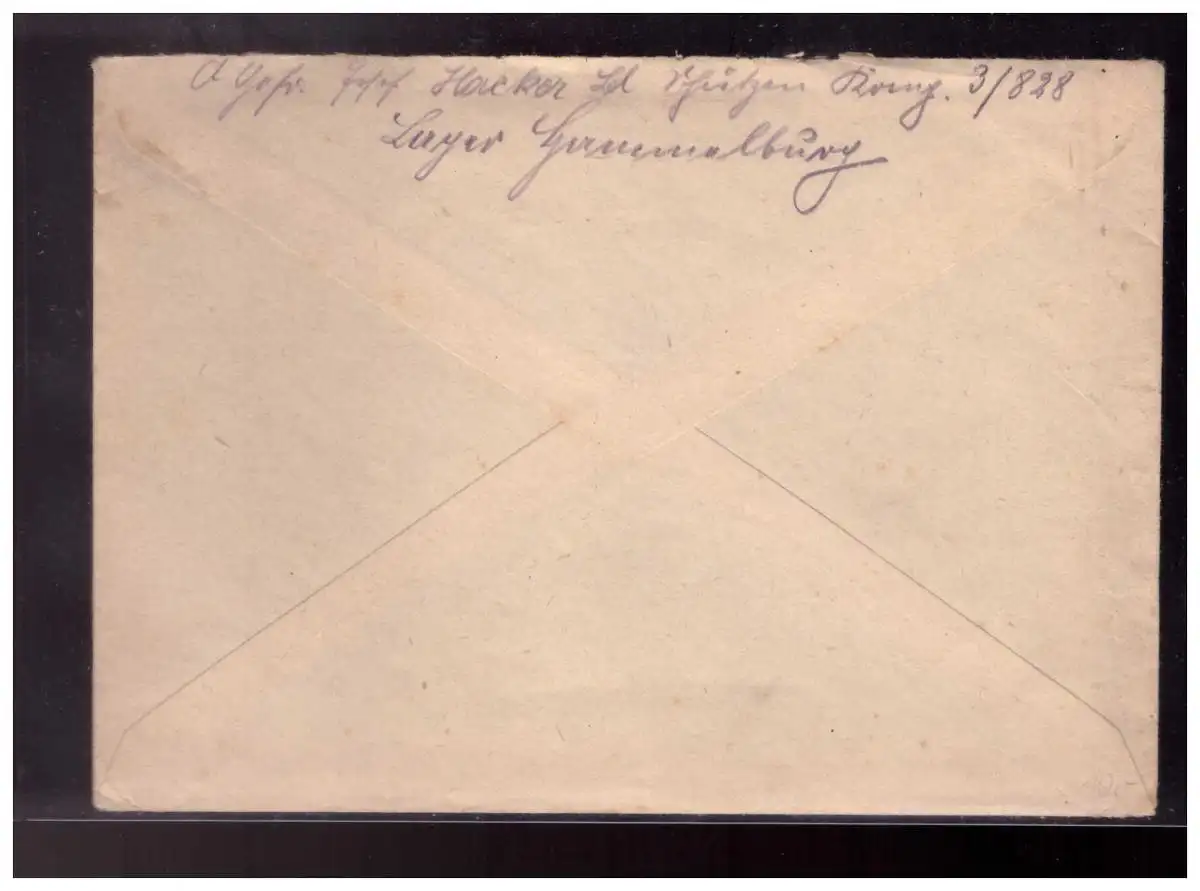 A Gefr. Josef Hacker Ld Schützen Komp. 3/828
Lager Hammelburg
10.-